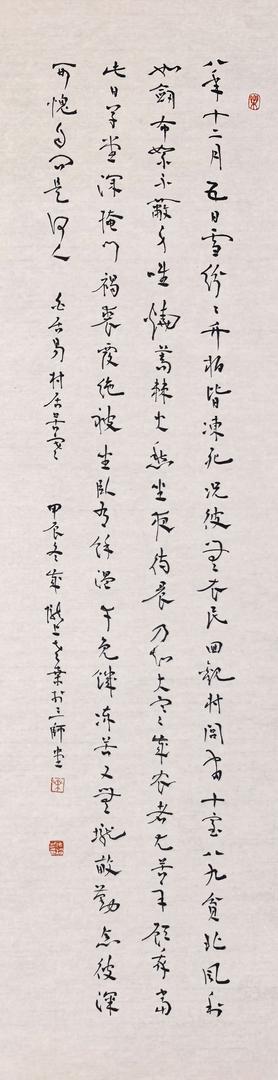 八年十二月五日雪紛〻竹柏皆凍死況彼無衣民回觀村閭間十室八九貧北風利
如劍布絮不蔽身唯燒蒿棘火愁坐夜待晨乃知大寒歲農者尤苦辛顧我當
此日草堂深掩門褐裘覆絁被坐臥有餘溫幸免饑凍苦又無壠畝勤念彼深
可愧自問是何人 白居易村居苦寒 甲辰冬歲隴上老葉於三師堂